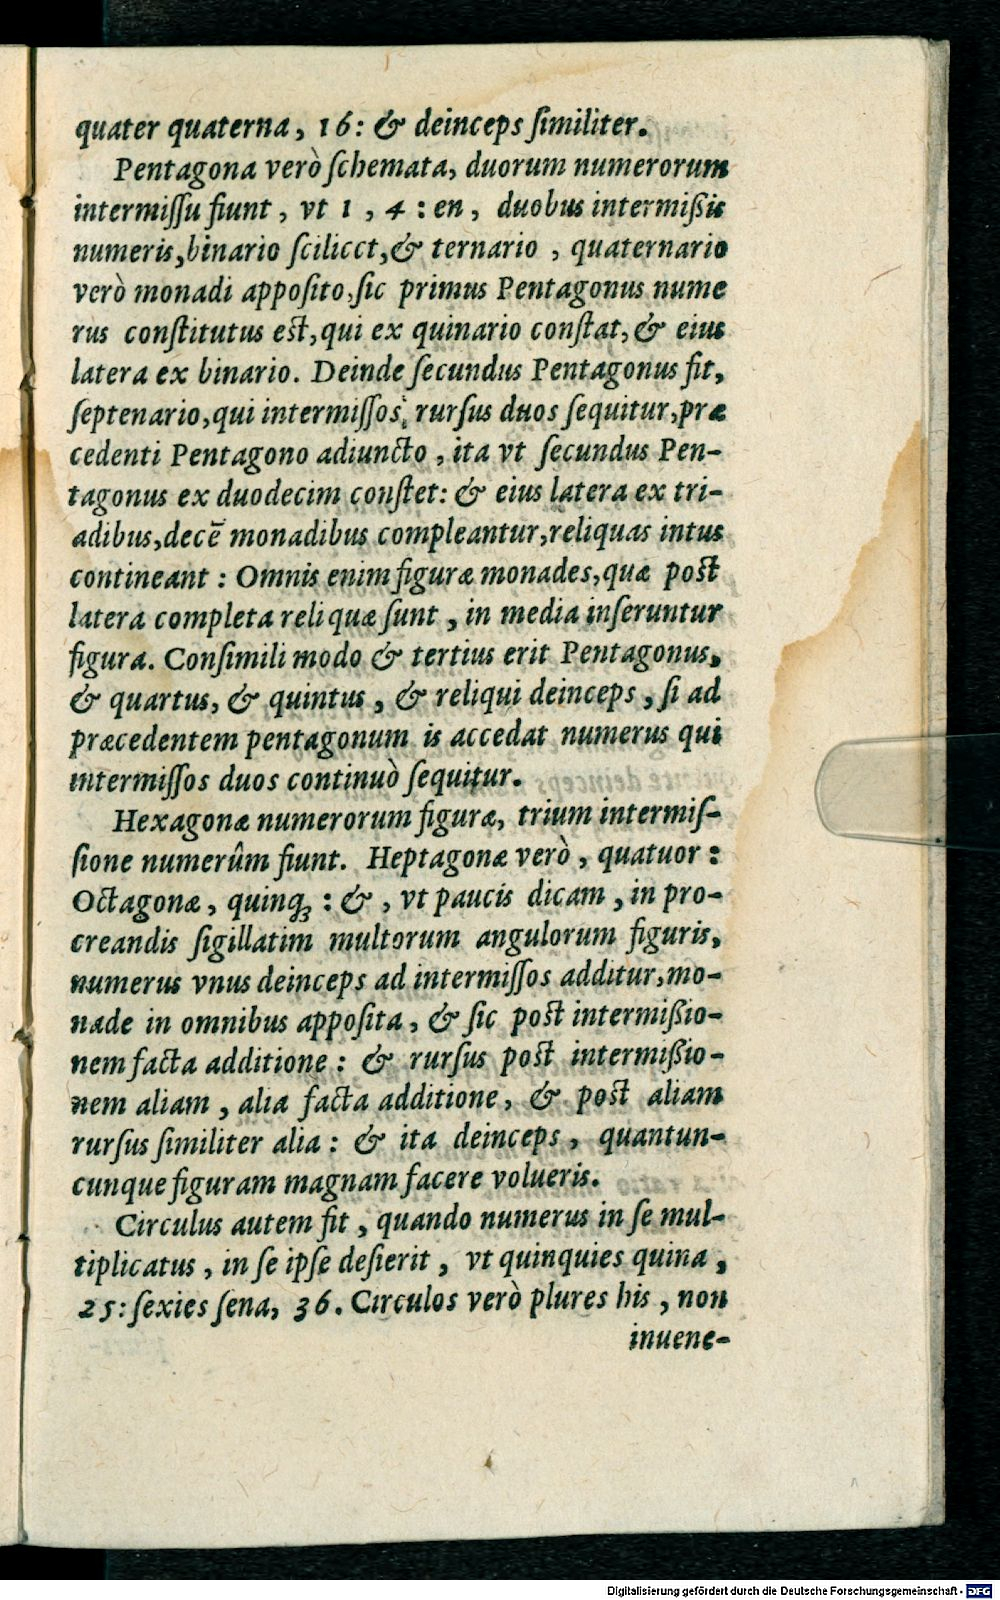 quater quaterna, 16: & deinceps ſimiliter.
Pentagona verò ſchemata, duorum numerorum
intermiſſu fiunt, vt 1, 4: en, duobus intermißis
numeris, binario ſcilicct, & ternario, quaternario
verò monadi appoſito, ſic primus Pentagonus nume
rus conſtitutus eſt, qui ex quinario conſtat, & eius
latera ex binario. Deinde ſecundus Pentagonus fit,
ſeptenario, qui intermiſſos, rurſus duos ſequitur, præ
cedenti Pentagono adiuncto, ita vt ſecundus Pen-
tagonus ex duodecim conſtet: & eius latera ex tri-
adibus, decē monadibus compleantur, reliquas intus
contineant: Omnis enim figuræ monades, quæ poſt
latera completa reliquæ ſunt, in media inſeruntur
figura. Conſimili modo & tertius erit Pentagonus,
& quartus, & quintus, & reliqui deinceps, ſi ad
præcedentem pentagonum is accedat numerus qui
intermiſſos duos continuò ſequitur.
Hexagonæ numerorum figuræ, trium intermiſ-
ſione numerûm fiunt. Heptagonæ verò, quatuor:
Octagonæ, quinq;: &, vt paucis dicam, in pro-
creandis ſigillatim multorum angulorum figuris,
numerus vnus deinceps ad intermiſſos additur, mo-
nade in omnibus appoſita, & ſic poſt intermißio-
nem facta additione: & rurſus poſt intermißio-
nem aliam, alia facta additione, & poſt aliam
rurſus ſimiliter alia: & ita deinceps, quantun-
cunque figuram magnam facere volueris.
Circulus autem fit, quando numerus in ſe mul-
tiplicatus, in ſe ipſe deſierit, vt quinquies quina,
25: ſexies ſena, 36. Circulos verò plures his, non
inuene-
Digitalisierung gefördert durch die Deutsche Forschungsgemeinschaft - DFG